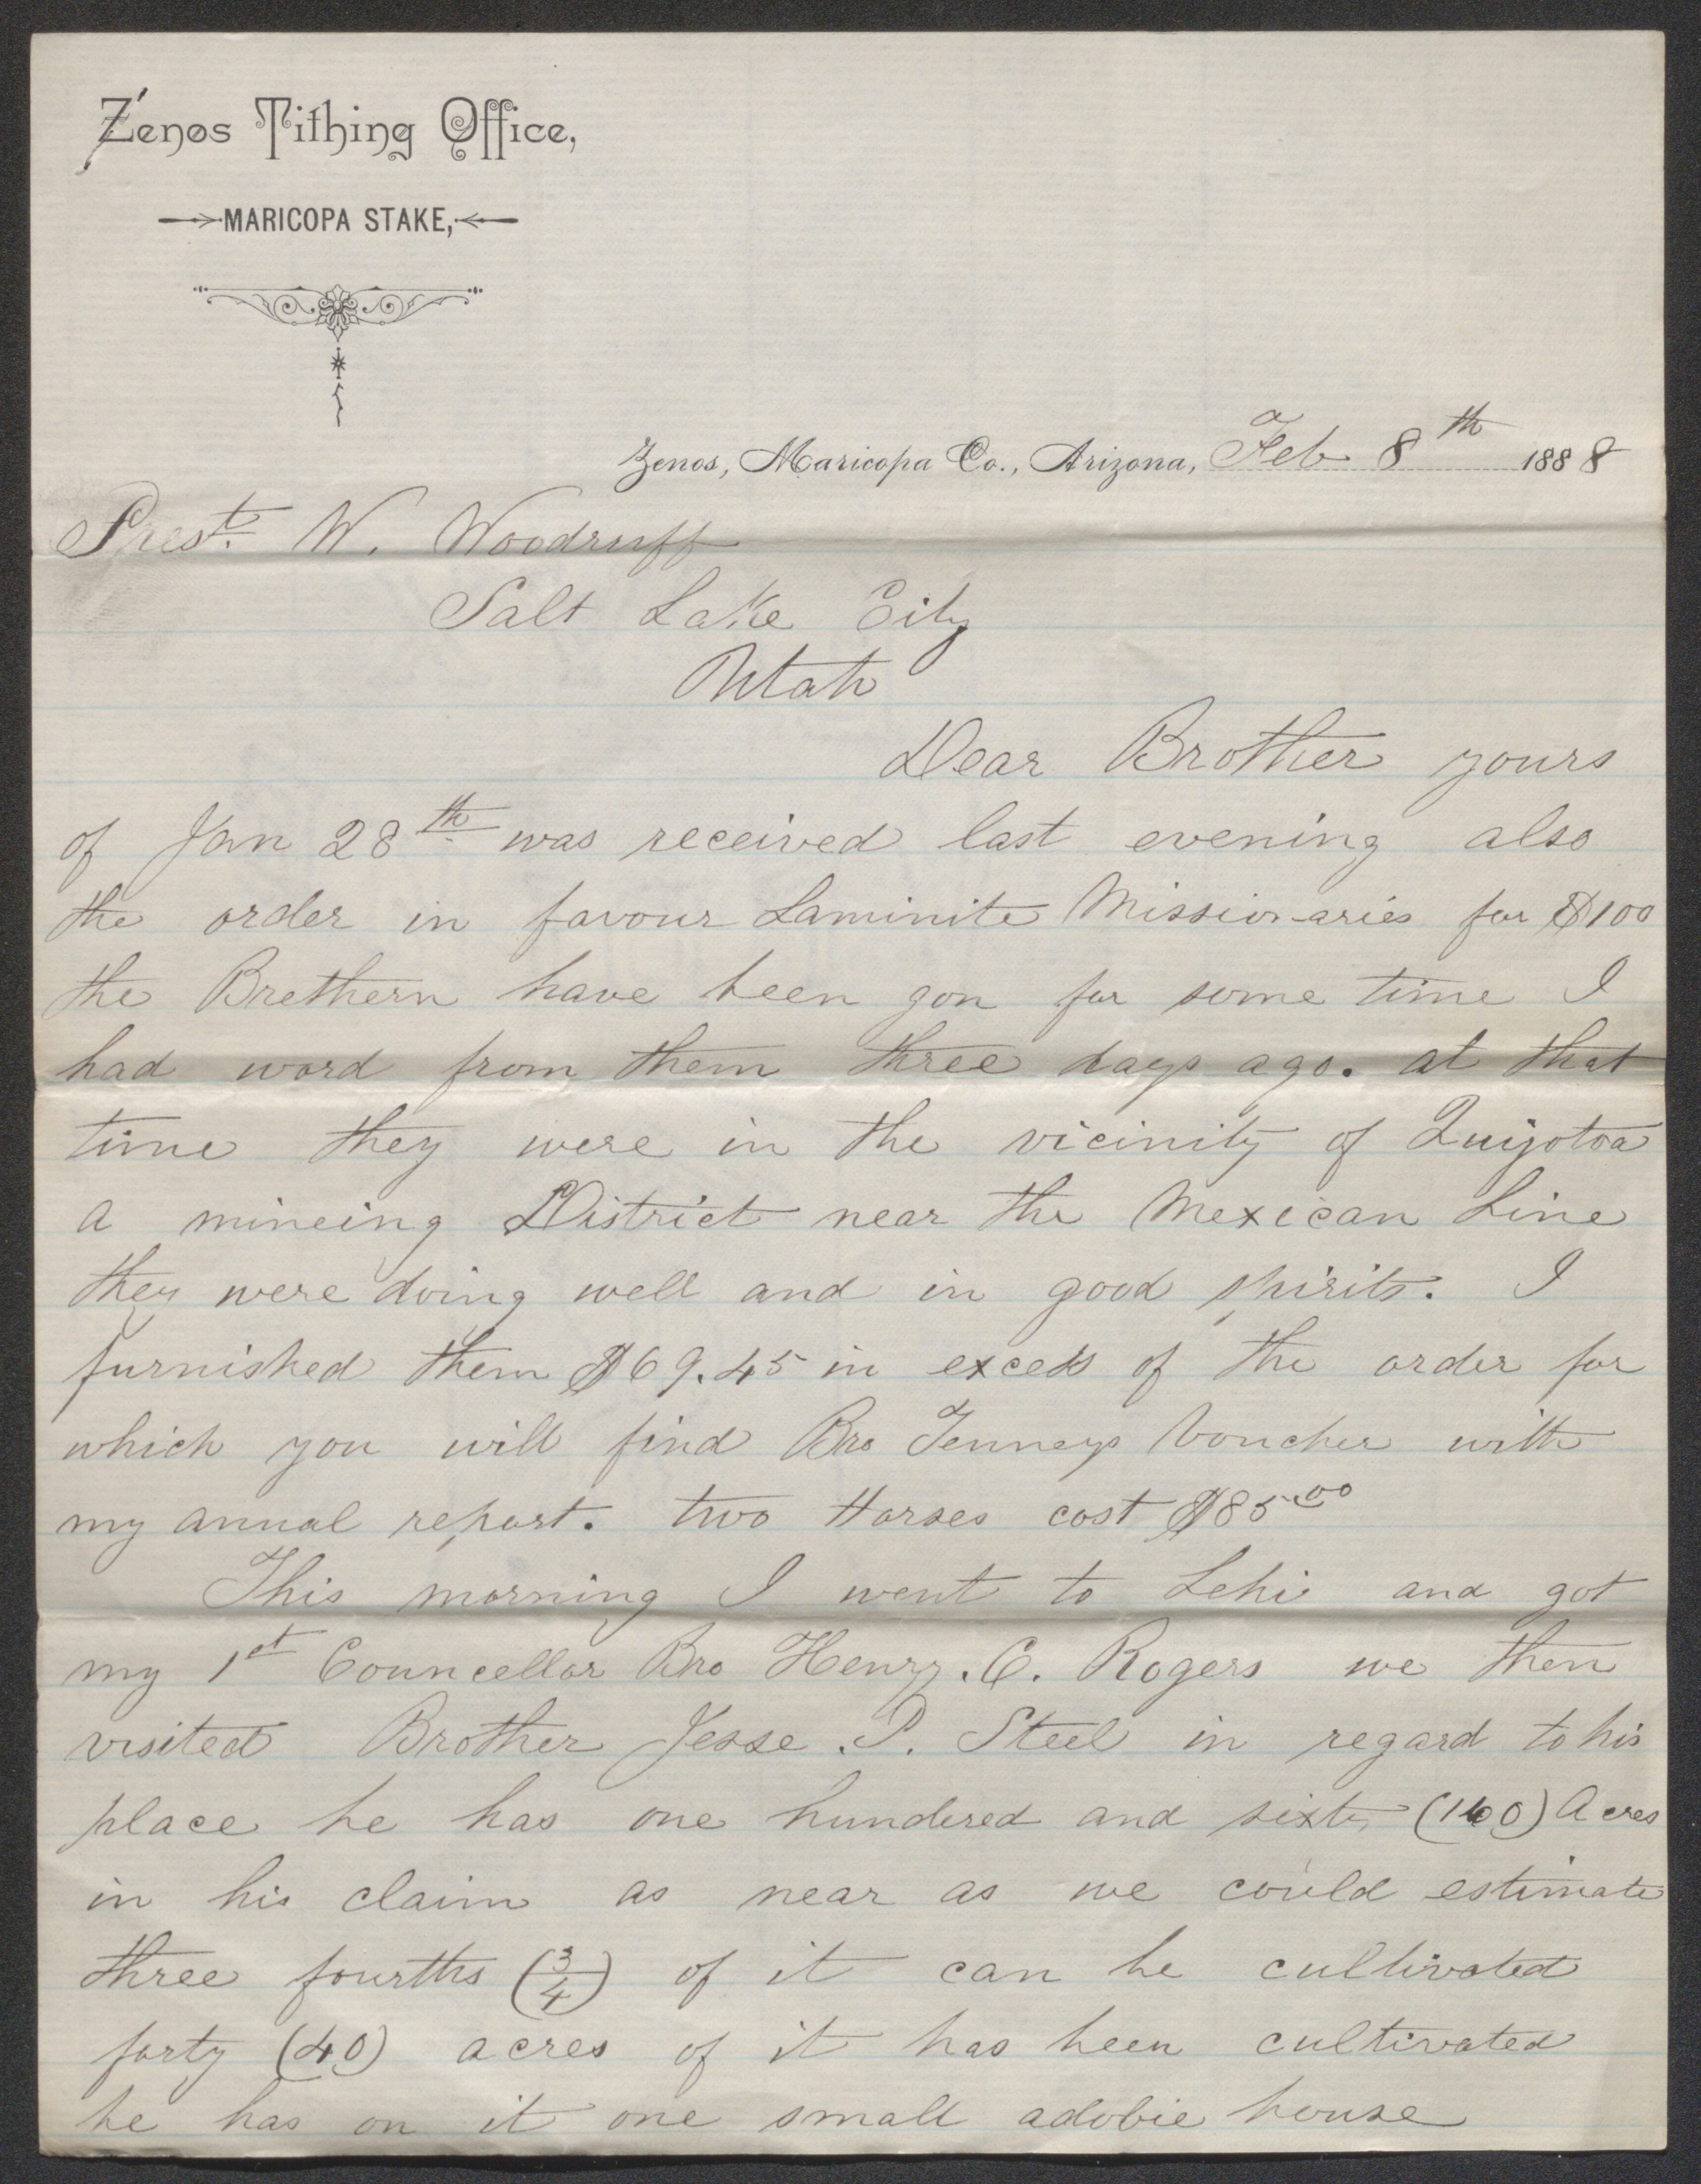 Zenos Tithing Office,
MARICOPA STAKE,
Zenos, Maricopa Co., Arizona, Feb 8th 1888
Prest. W. Woodruff
Salt Lake City
Utah
Dear Brother yours
of Jan 28th was received last evening also
the order in favour Laminite Missionaries for $100
the Brethern have been gon for some time I
had word from them three days ago. at that
time they were in the vicinity of Quijotoa
a mineing District near the Mexican Line
they were doing well and in good spirits. I
furnished them $69.45 in excess of the order for
which you will find Bro Tenneys Voucher with
my annual report. two Horses cost $85.00
This morning I went to Lehi and got
my 1st Councellor Bro Henry. C. Rogers we then
visited Brother Jesse. P. Steel in regard to his
place he has one hundered and sixty (160) Acres
in his claim as near as we could estimate
three fourths (3/4) of it can be cultivated
forty (40) acres of it has been cultivated
he has on it one small adobie house